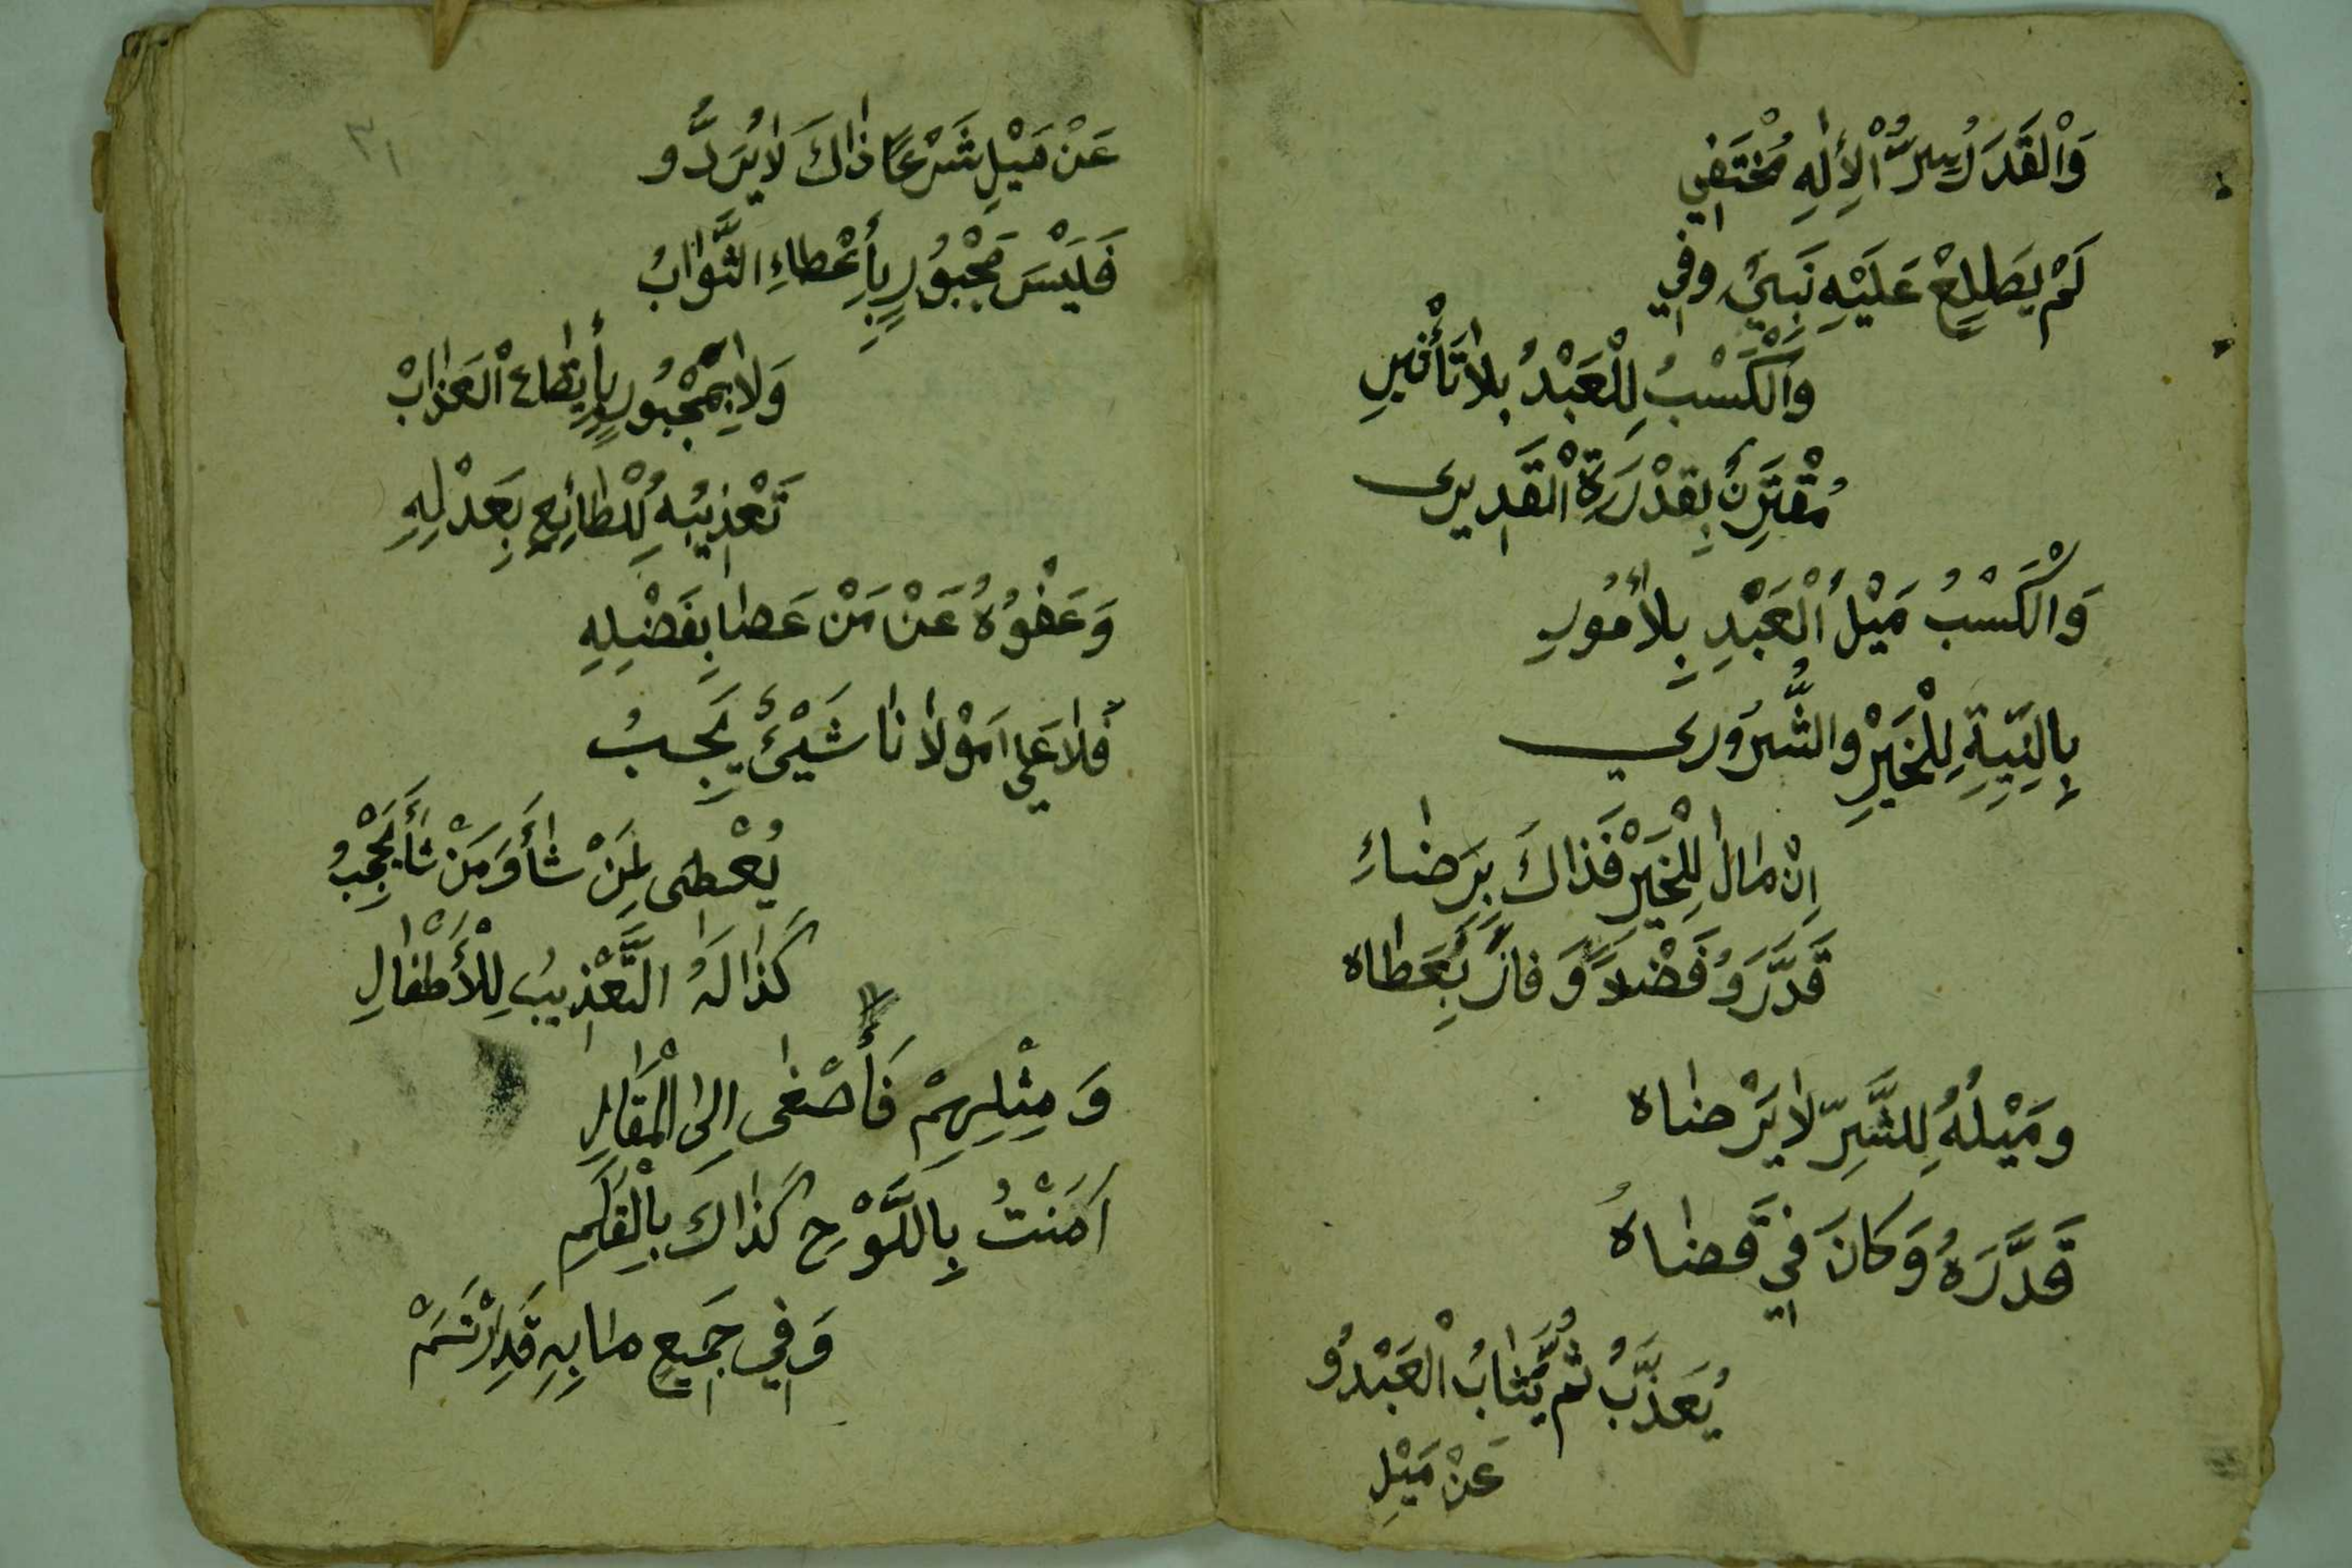 وَالْقَدَرُ سِرُّ الْأِلٰهِ مُخْتَفِي
لَمْ يَطَّلِعْ عَلَيْهِ نَبِيٌّ وَفِي
وَالْكَسْبُ لِلْعَبْدُ بِلاٰ تَأْثِيرِ
مُقْتَرِنٌ بِقُدْرَةِ الْقَدِيرِى
وَالْكَسْبُ مَيْلُ الْعَبْدِ بِلاُمُورِ
بِالنِيَّةِ لِلْخَيْرِ وَالشُّرُورِي
اِنْ مٰالَ لِلْخَيْرِ فَذَاكَ بِرَضٰاءِ
قَدَّرَوُ فَضْلاً وَفَازَ بِعَطٰاه
وَمَيْلُهُ لِلشَّرِّ لاٰيَرْضٰاه
قَدَّرَهُ وَكَانَ فِي قَضٰاهُ
يُعَذَّبُ ثُمَّ يُثٰابُ الْعَبْدُو
عَنْ مَيْلِ
٣١
عَنْ مَيْلِ شَرْعًا ذٰاكَ لاٰيُرَدُّو
فَلَيْسَ مَجْبُورٍ بِأِعْطٰاءِ الثَّوٰابُ
وَلاٰ بِمَجْبُورٍ بِأِيقٰاعْ الْعَذٰابْ
تَعْذِيبُهُ لِلْطٰائِعِ بِعَدْلِهِ
وَعَفْوُهُ عَنْ مَنْ عَصٰا بِفَضْلِهِ
فَلاٰ عَلىٰ مَوْلاٰنٰا شَيْئٌ يَجِبُ
يُعْطٰى لِمَنْ شٰأَ وَمَنْ شٰأَ يَحْجِبُ
كَذٰا لَهُ التَّعْذِيبُ لِلْأَطْفٰالِ
وَمِثْلِهِمْ فَأَصْغٰى اِلىَ الْمَقٰالِ
اَمَنْتُ بِاللَّوْحِ كَذٰاكَ بِالْقَلَمِ
وَفِي جَمِيعِ مٰا بِهِ قَدِ ارْتَسَمْ